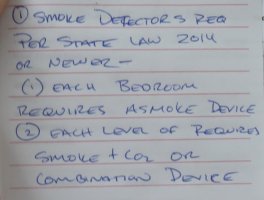 ① SMOKE DETECTORS REQ
PER STATE LAW 2014
OR NEWER –
(1) EACH BEDROOM
REQUIRES A SMOKE DEVICE
② EACH LEVEL OF REQUIRES
SMOKE + CO2 OR
COMBINATION DEVICE